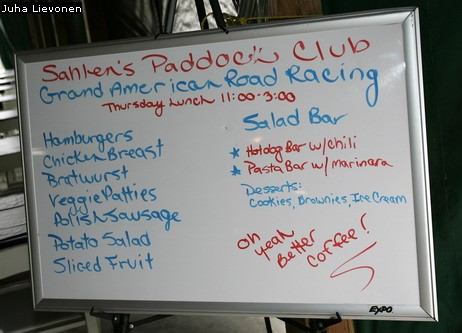 Juha Lievonen
Sahlen's Paddock Club
Grand American Road Racing
Thursday Lunch 11:00-3:00
Hamburgers
Chicken Breast
Bratwurst
Veggie Patties
Polish Sausage
Potato Salad
Sliced Fruit
Salad Bar
* Hotdog Bar w/ Chili
* Pasta Bar w/ marinara
Desserts:
Cookies, Brownies, Ice Cream
Oh yeah
Better
Coffee!
EXPO